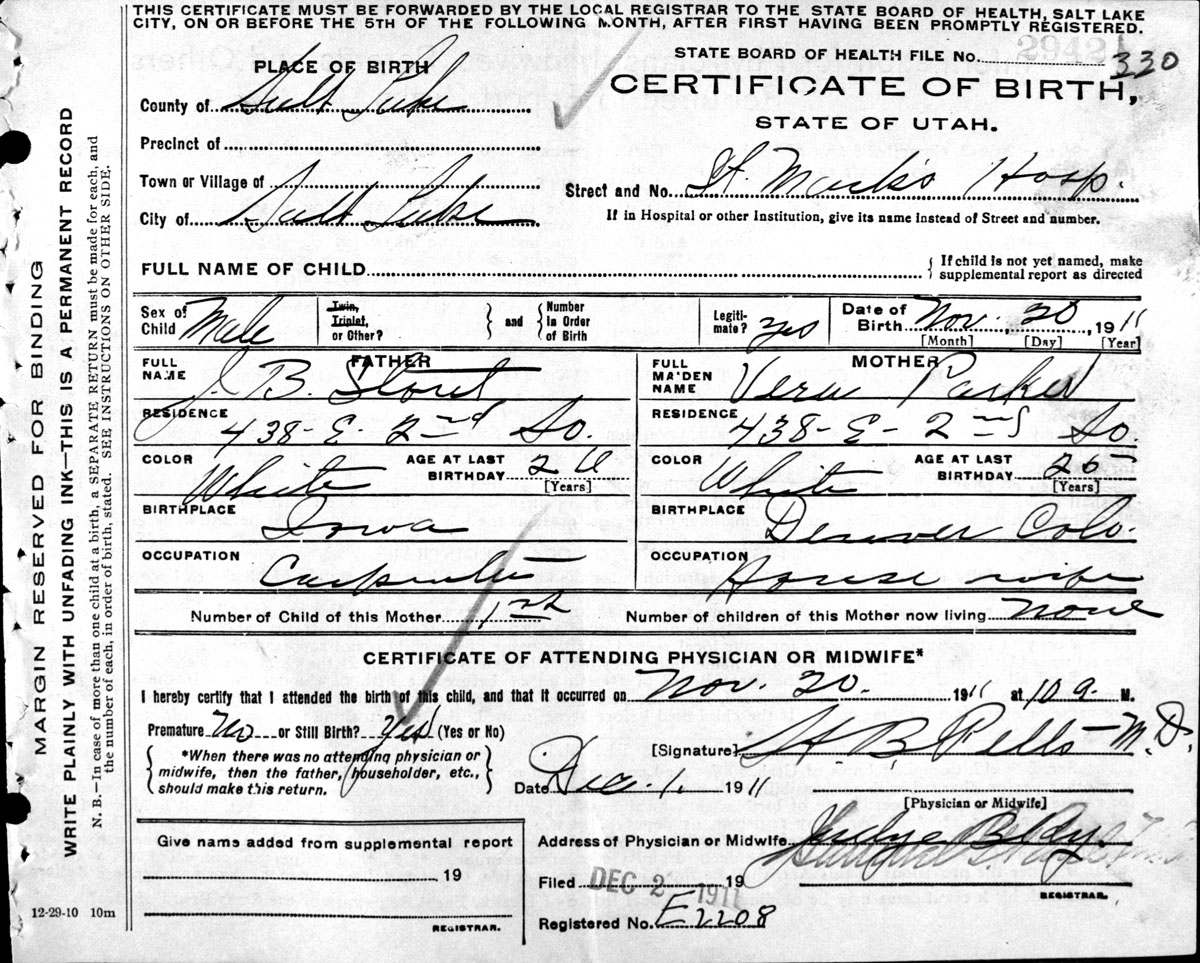 THIS CERTIFICATE MUST BE FORWARDED BY THE LOCAL REGISTRAR TO THE STATE BOARD OF HEALTH, SALT LAKE
CITY, ON OR BEFORE THE 5TH OF THE FOLLOWING MONTH, AFTER FIRST HAVING BEEN PROMPTLY REGISTERED.
STATE BOARD OF HEALTH FILE No. 330
CERTIFICATE OF BIRTH,
STATE OF UTAH.
PLACE OF BIRTH
County of Salt Lake
Precinct of
Town or Village of
City of Salt Lake
Street and No. St. Mark's Hosp.
If in Hospital or other Institution, give its name instead of Street and number.
FULL NAME OF CHILD
If child is not yet named, make
supplemental report as directed
Sex of Child Male
Twin, Triplet, or Other?
and
Number in Order of Birth
Legiti-mate? yes
Date of Birth Nov. 30, 1911
[Month] [Day] [Year]
FATHER
FULL NAME J. B. Stout
RESIDENCE 438 - E - 2nd So.
COLOR White
AGE AT LAST BIRTHDAY 26
[Years]
BIRTHPLACE Iowa
OCCUPATION Carpenter
MOTHER
FULL MAIDEN NAME Vera Parker
RESIDENCE 438 - E - 2nd So.
COLOR White
AGE AT LAST BIRTHDAY 20
[Years]
BIRTHPLACE Denver Colo.
OCCUPATION House wife
Number of Child of this Mother 1st
Number of children of this Mother now living none
CERTIFICATE OF ATTENDING PHYSICIAN OR MIDWIFE*
I hereby certify that I attended the birth of this child, and that it occurred on Nov. 30. 1911 at 10 a. M.
Premature No or Still Birth? Yes (Yes or No)
*When there was no attending physician or
midwife, then the father, householder, etc.,
should make this return.
[Signature] M.D.
Date Dec. 1. 1911
[Physician or Midwife]
Address of Physician or Midwife Judge Bldg.
Give name added from supplemental report
19
REGISTRAR.
Filed DEC 2 1911 19
REGISTRAR.
Registered No. E2208
12-29-10 10m
MARGIN RESERVED FOR BINDING
WRITE PLAINLY WITH UNFADING INK—THIS IS A PERMANENT RECORD
N. B.—In case of more than one child at a birth, a SEPARATE RETURN must be made for each, and
the number of each, in order of birth, stated. SEE INSTRUCTIONS ON OTHER SIDE.